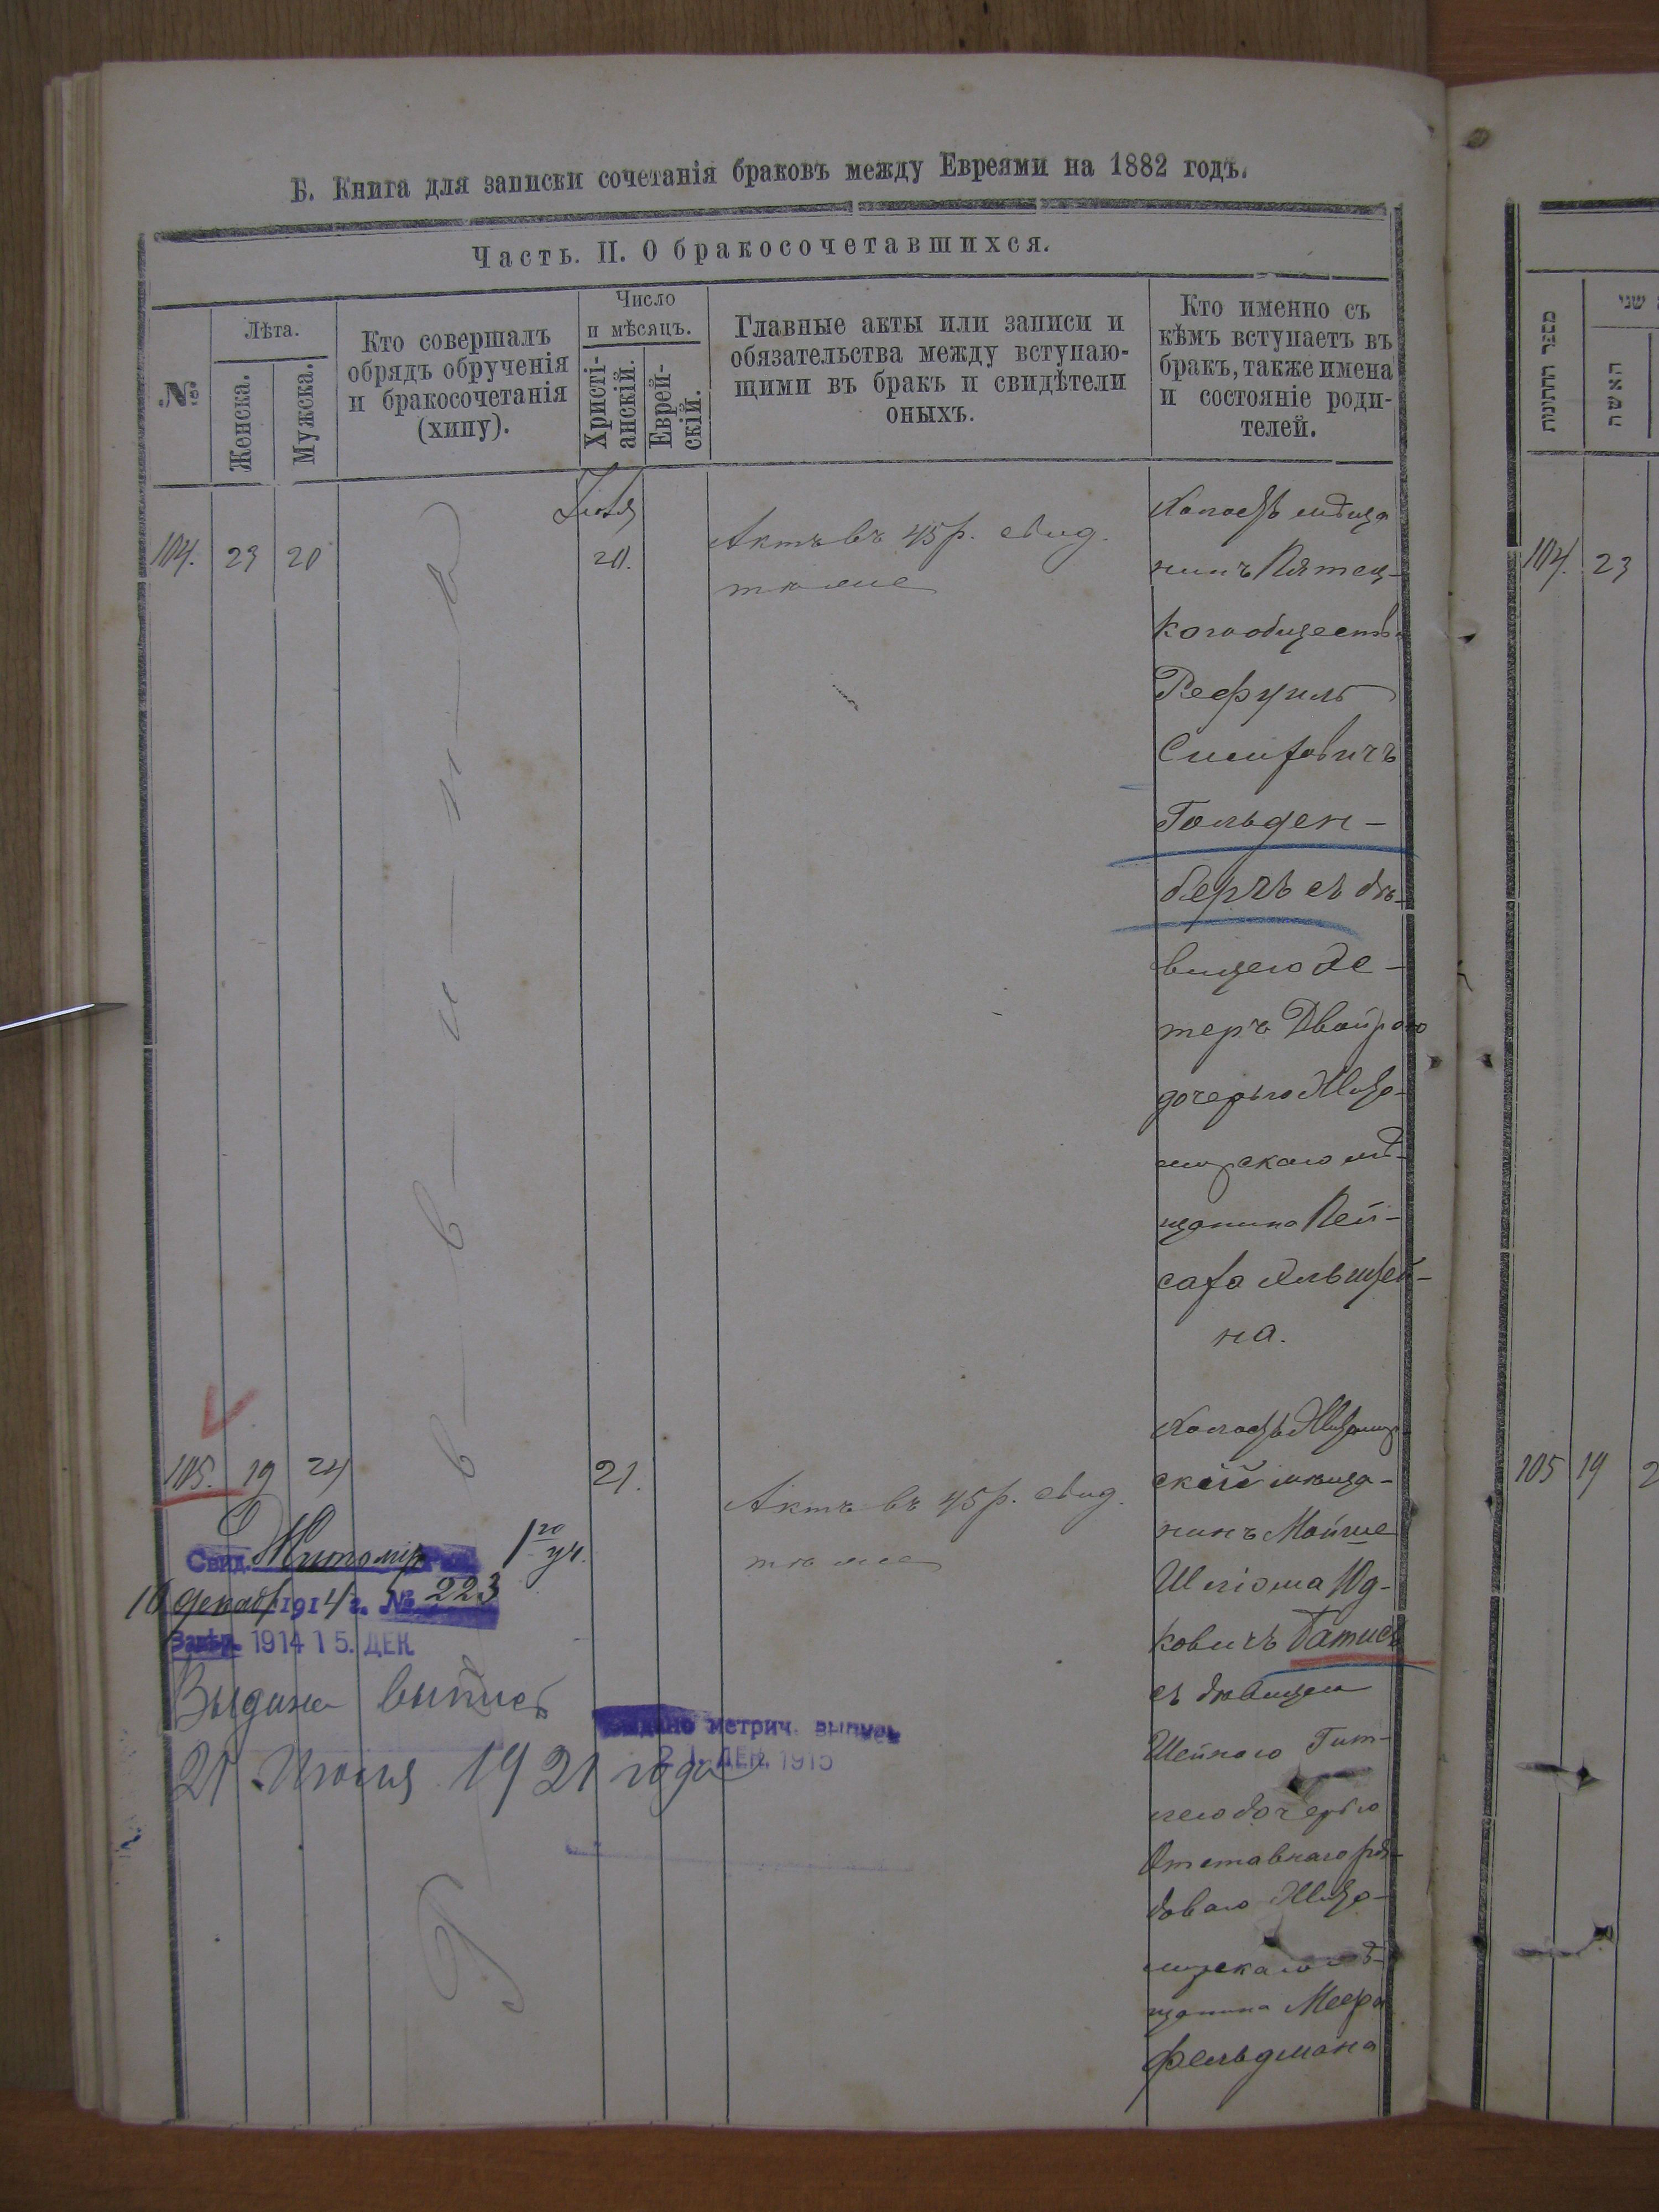 Б. Книга для записки сочетанія браковъ между Евреями на 1882 годъ.
Часть. II. О бракосочетавшихся.
№
Лѣта.
Женска.
Мужска.
Кто совершалъ
обрядъ обрученія
и бракосочетанія
(хипу).
Число
и мѣсяцъ.
Христі-
анскій.
Еврей-
скій.
Главные акты или записи и
обязательства между вступаю-
щими въ бракъ и свидѣтели
оныхъ.
Кто именно съ
кѣмъ вступаетъ въ
бракъ, также имена
и состояніе роди-
телей.
104. 23 20
20.
Актъ въ 45 р. свид.
тѣже
Холостъ мѣща
нинъ Пятец-
кого обществ
Рефуиль
Сими
Гольден-
бергъ съ дѣ-
вицею Э
теръ Двойрою
дочерью Жито-
мирскаго мѣ-
щанина Пей-
саха
на.
105. 19 24
21.
Актъ въ 45 р. свид.
тѣже
Холостъ Житомир
скій мѣща-
нинъ Мойше
Шліома Юд-
ковичъ
съ дѣвицею
Шейною Гит-
лею дочерью
Отставнаго ря-
доваго Жито-
мирскаго мѣ-
щанина Меера
Фельдмана
Свид. Житомір 1го уч.
10 декаб 1914 г. № 223
1914 15. ДЕК.
Выдана выпись
21 Июля 1921 года
Выдано метрич. выпись
21. ДЕК. 1915
מספר החתונות
שני
האשה
104. 23
105 19 2